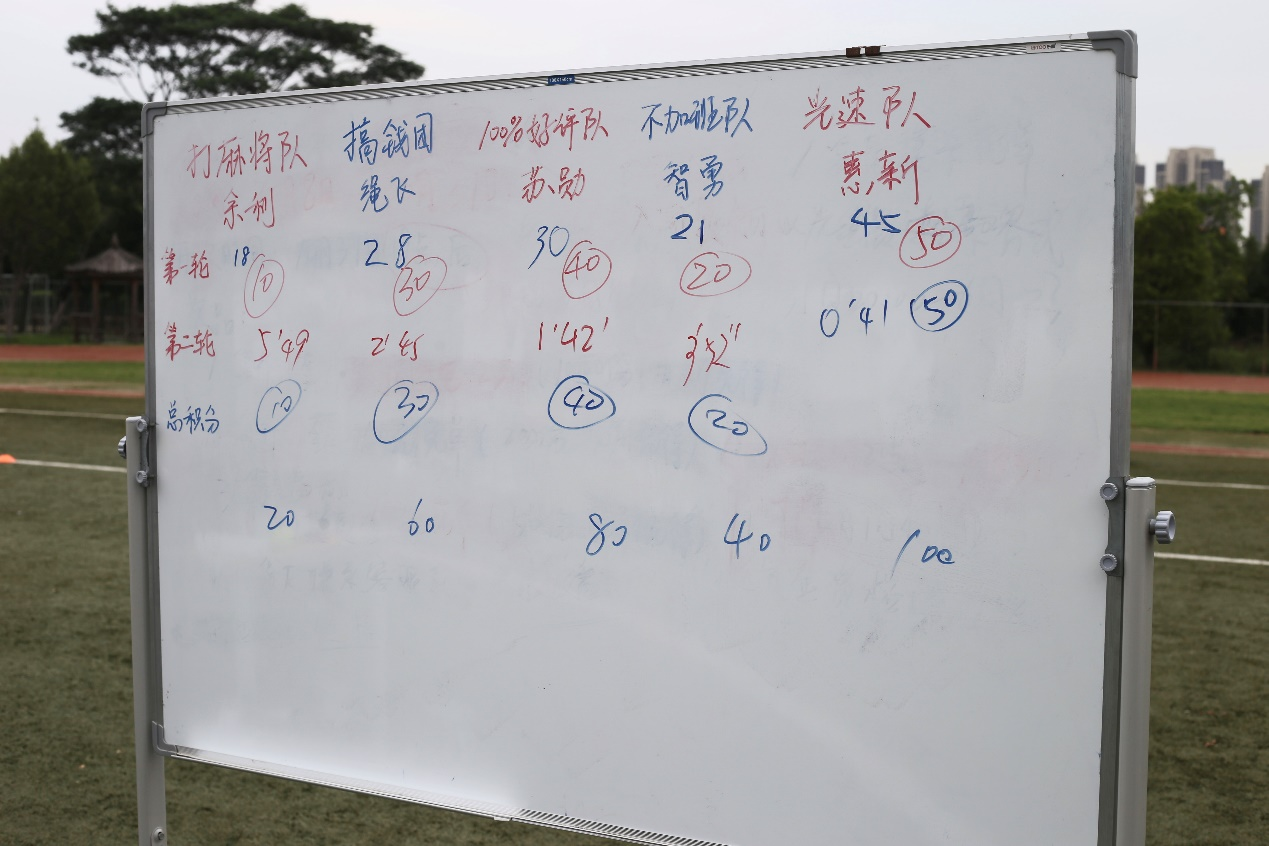 打麻将队 搞钱团 100%好评队 不加班队 光速队
余利 绳飞 苏勋 智勇 惠新
第一轮 18 28 30 21 45
10 30 40 20 50
第二轮 5'49 2'45 1'42' 3'52" 0'41 50
总积分 10 30 40 20
20 60 80 40 100